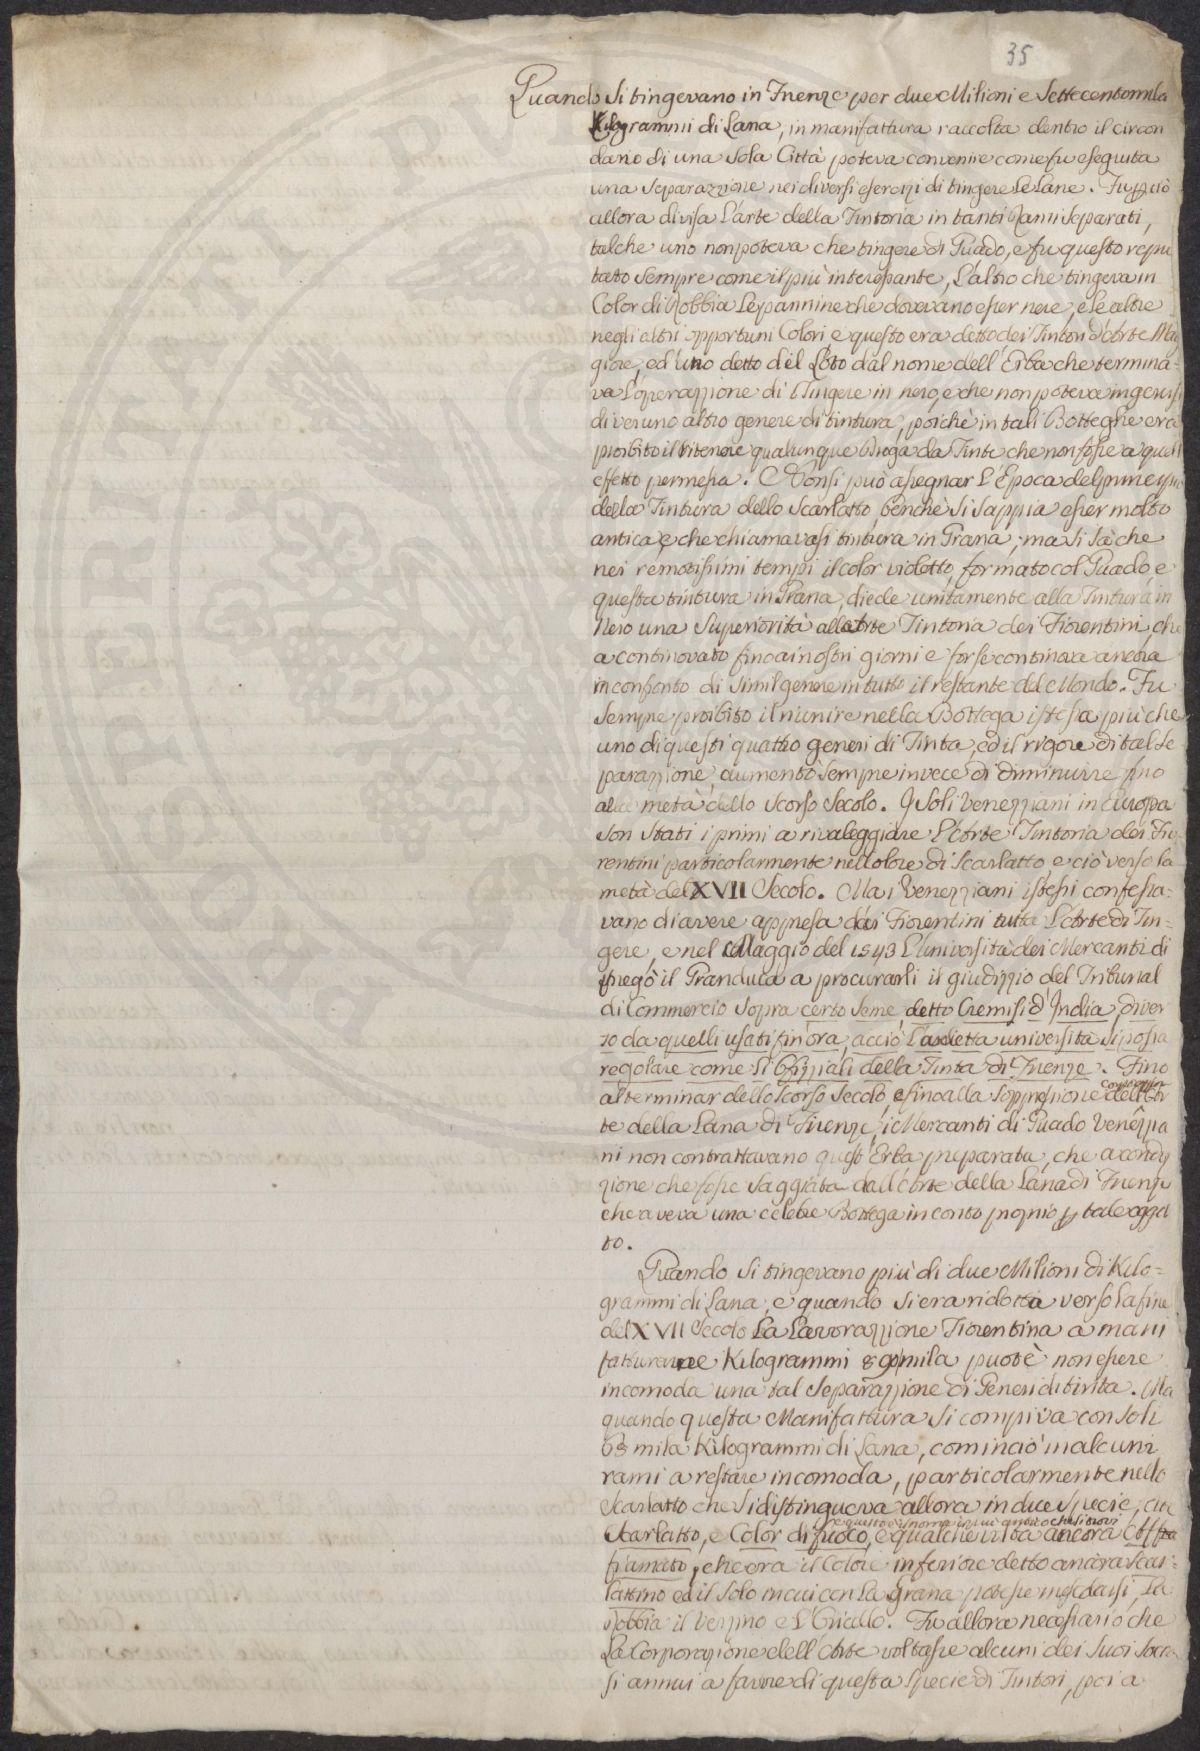 35
Quando si tingevano in Firenze per due Milioni e Settecentomila
Kilogrammi di Lana, in manifattura raccolta dentro il circon
dario di una sola Città poteva convenire come fu eseguita
una separazzione nei diversi esercizi di tingere Le Lane. Fu perciò
allora divisa L'arte della Tintoria in tanti Rami separati,
talche uno non poteva che tingere di Guado, e fu questo repu
tato sempre come il più interessante, L'altro che tingeva in
Color di Robbia Le pannine che dovevano esser nere, e le altre
negli altri opportuni Colori e questo era detto dei Tintori d'Arte Mag
giore, ed uno detto del Loto dal nome dell'Erba che termina=
va L'operazzione di Tingere in nero, e che non poteva ingerirsi
di veruno altro genere di tintura, poichè in tali Botteghe era
proibito il ritenere qualunque Droga da Tinte che non fosse a quell
effetto permessa. Non si può assegnar L'Epoca del principio
della Tintura dello Scarlatto, benchè si sappia esser molto
antica e che chiamavasi tintura in Grana; ma si sà che
nei remotissimi tempi il color violetto, formato col Guado, e
questa tintura in Grana, diede unitamente alla Tintura in
Nero una Superiorità all'Arte Tintoria dei Fiorentini, che
a continovato fino ai nostri giorni e forse continova ancora
in confronto di simil genere in tutto il restante del Mondo. Fu
sempre proibito il riunire nella Bottega istessa più che
uno di questi quattro generi di Tinta, ed il rigore di tal Se
parazzione aumentò sempre invece di diminuire fino
alla metà dello scorso Secolo. I Soli Venezziani in Europa
son stati i primi a rivaleggiare L'Arte Tintoria dei Fio
rentini particolarmente nel colore di Scarlatto e ciò verso la
metà del XVII Secolo. Ma i Venezziani istessi confessa=
vano di avere appresa dai Fiorentini tutta L'Arte di Tin=
gere, e nel Maggio del 1543 L'Università dei Mercanti di
pregò il Granduca a procurarli il giudizzio del Tribunal
di Commercio sopra certo seme, detto Cremisi d'India, diver
so da quelli usati fin'ora, acciò L'addetta università si possa
regolare come Li Offizziali della Tinta di Firenze. Fino
al terminar dello scorso Secolo, e fino alla soppressione dell'Ar
te della Lana di Firenze, i Mercanti di Guado Venezzia
ni non contrattavano quest'Erba preparata, che a condi
zione che fosse saggiata dall'Arte della Lana di Firenze
che aveva una celebre Bottega in conto proprio per tale ogget
to.
Quando si tingevano più di due Milioni di Kilo=
grammi di Lana, e quando si era ridotta verso la fine
del XVII Secolo La Lavorazzione Fiorentina a mani
fatturarne Kilogrammi mila puotè non essere
incomoda una tal Separazzione di Generi di tinta. Ma
quando questa Manifattura si compiva con soli
63 mila Kilogrammi di Lana, cominciò in alcuni
rami a restare incomoda, particolarmente nello
Scarlatto che si distingueva allora in due specie, cioè
e questo è il nome più antico che si trovi
Scarlatto, e Color di fuoco, e qualche volta ancora
fiamato, che era il Colore inferiore detto ancora Scar=
lattino ed il solo in cui con La grana potesse mescolarsi, La
Robbia il Verzino e L'Oriallo. Fu allora necessario che
La Corporazione dell'Arte voltasse alcuni dei suoi
si annui a favore di questa specie di Tintori, poi a